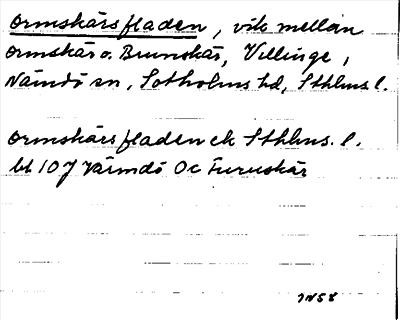 Ormskärsfladen, vik mellan
Ormskär o. Brunskär, Villinge,
Nämdö sn, Sotholms hd, Sthlms l.
Ormskärsfladen ek Sthlms. l.
bl 10J Värmdö Oc Furuskär
1958